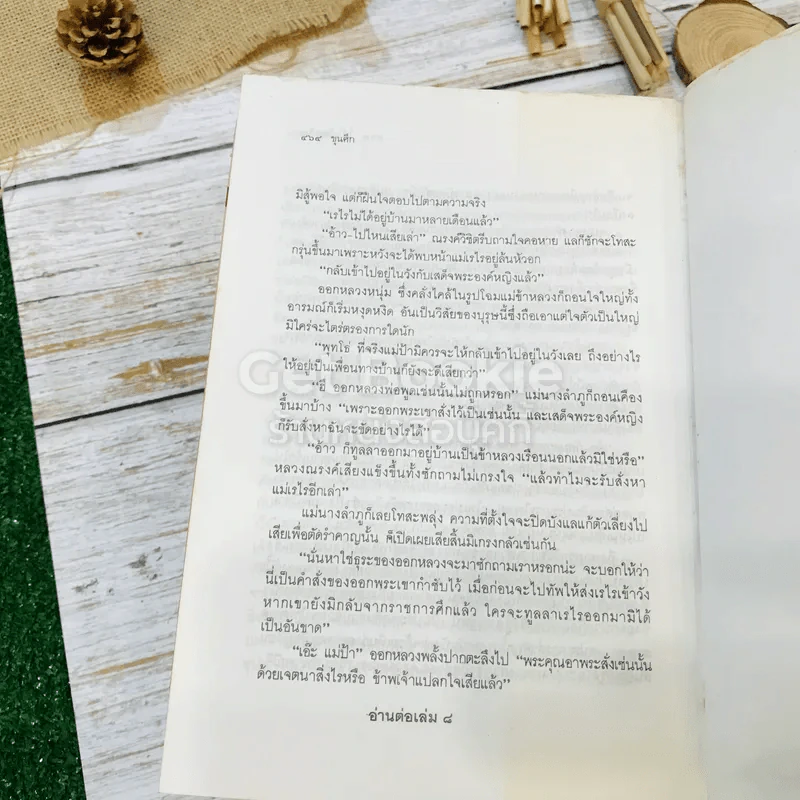 ๔๖๔ ขุนศึก
มิสู้พอใจ แต่ก็ฝืนใจตอบไปตามความจริง
“เรไรไม่ได้อยู่บ้านมาหลายเดือนแล้ว”
“อ้าว-ไปไหนเสียเล่า” ณรงค์วิชิตรีบถามใจคอหาย แลก็ชักจะโทสะ
กรุ่นขึ้นมาเพราะหวังจะได้พบหน้าแม่เรไรอยู่ล้นหัวอก
“กลับเข้าไปอยู่ในวังกับเสด็จพระองค์หญิงแล้ว”
ออกหลวงหนุ่ม ซึ่งคลั่งไคล้ในรูปโฉมแม่ข้าหลวงก็ถอนใจใหญ่ทั้ง
อารมณ์ก็เริ่มหงุดหงิด อันเป็นวิสัยของบุรุษนี้ซึ่งถือเอาแต่ใจตัวเป็นใหญ่
มิใคร่จะไตร่ตรองการใดนัก
“พุทโธ่ ที่จริงแม่ป้ามิควรจะให้กลับเข้าไปอยู่ในวังเลย ถึงอย่างไร
ให้อยู่เป็นเพื่อนทางบ้านก็ยังจะดีเสียกว่า”
“ฮึ ออกหลวงพ่อพูดเช่นนั้นไม่ถูกหรอก” แม่นางลำภูก็ถอนเคือง
ขึ้นมาบ้าง “เพราะออกพระเขาสั่งไว้เป็นเช่นนั้น และเสด็จพระองค์หญิง
ก็รับสั่งหาฉันจะขัดอย่างไรได้”
“อ้าว ก็ทูลลาออกมาอยู่บ้านเป็นข้าหลวงเรือนนอกแล้วมิใช่หรือ”
หลวงณรงค์เสียงแข็งขึ้นทั้งซักถามไม่เกรงใจ “แล้วทำไมจะรับสั่งหา
แม่เรไรอีกเล่า”
แม่นางลำภูก็เลยโทสะพลุ่ง ความที่ตั้งใจจะปิดบังแลแก้ตัวเลี่ยงไป
เสียเพื่อตัดรำคาญนั้น ก็เปิดเผยเสียสิ้นมิเกรงกลัวเช่นกัน
“นั่นหาใช่ธุระของออกหลวงจะมาซักถามเราหรอกน่ะ จะบอกให้ว่า
นี่เป็นคำสั่งของออกพระเขากำชับไว้ เมื่อก่อนจะไปทัพให้ส่งเรไรเข้าวัง
หากเขายังมิกลับจากราชการศึกแล้ว ใครจะทูลลาเรไรออกมามิได้
เป็นอันขาด”
“เอ๊ะ แม่ป้า” ออกหลวงพลั้งปากตะลึงไป “พระคุณอาพระสั่งเช่นนั้น
ด้วยเจตนาสิ่งไรหรือ ข้าพเจ้าแปลกใจเสียแล้ว”
อ่านต่อเล่ม ๘